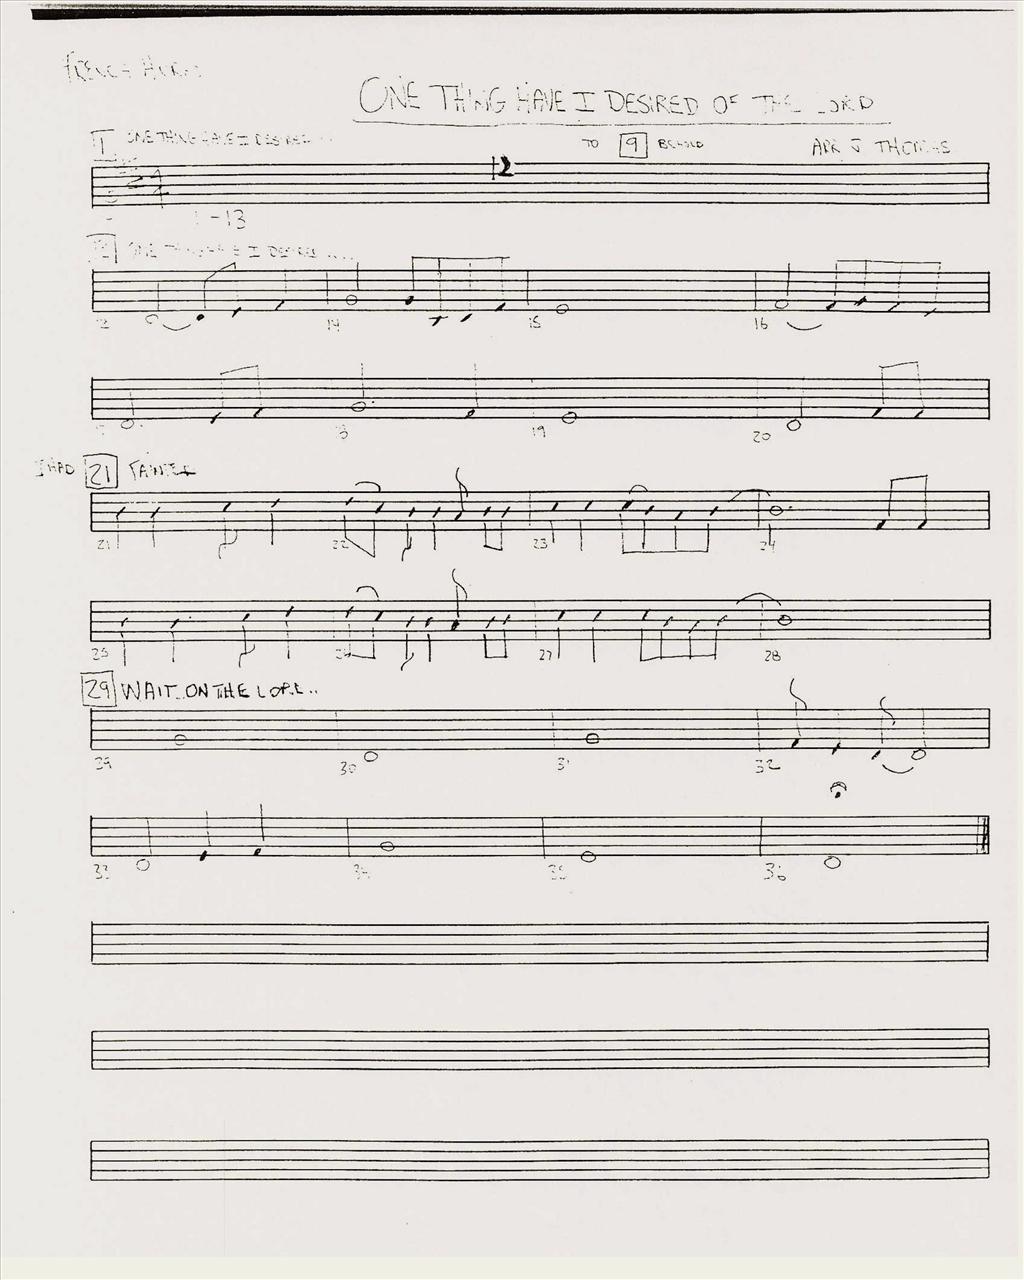 FRENCH HORN
ONE THING HAVE I DESIRED OF THE LORD
1 ONE THING HAVE I DESIRED ... TO 9 BEHOLD ARR J THOMAS
2
1-13
ONE THING HAVE I DESIRED ....
14 15 16
19 20
I HAD 21 FAINTED
21 22 23 24
25 26 27 28
29 WAIT ON THE LORD..
29 30 31 32
33 34 35 36